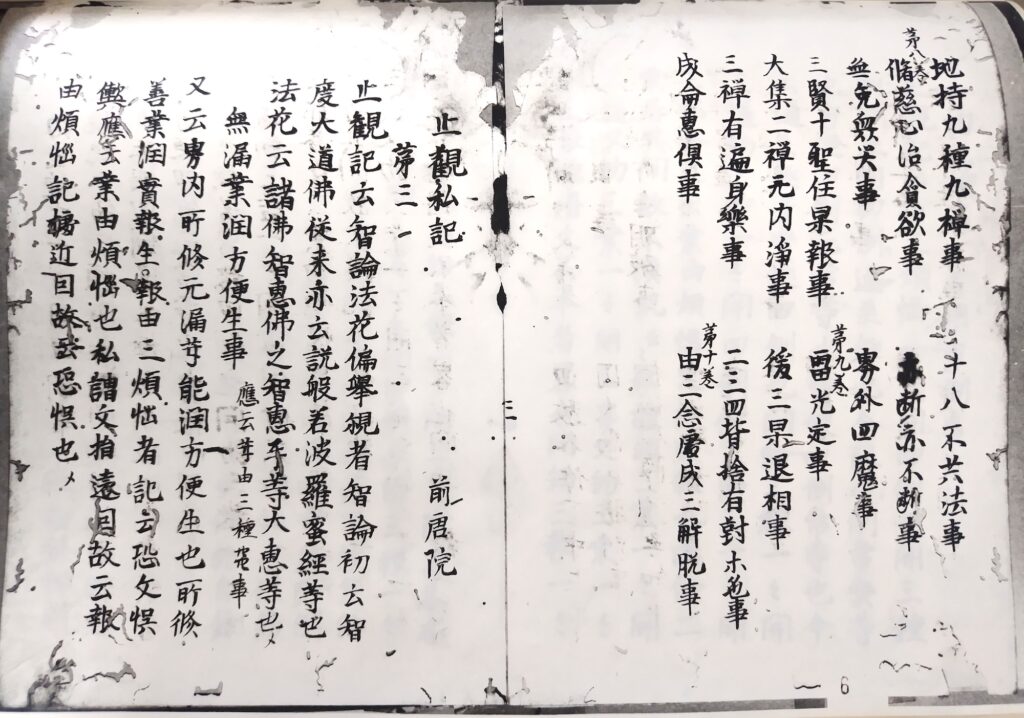 地持九種九禅事
十八不共法事
第八巻
脩慈心治貪欲事
断亦不断事
三賢十聖住果報事
第九巻
留光定事
大集二禅无内淨事
後三果退相事
三禅有遍身樂事
二三四皆捨有對
第十巻
由三念處成三解脱事
止觀私記
前唐院
第三
止觀記云智論法花偏舉規者智論初云智
度大道佛從来亦云説般若波羅蜜經等也
法花云諸佛智惠佛之智惠平等大惠等也
無漏業潤方便生事
應云
由二種
事
又云界内所脩无漏能潤方便生也所脩
善業潤實報生報由三煩惱者記云恐文悞
應云業由煩惱也私謂文指遠因故云報
由煩惱記據近因故云恐悞也
三
6